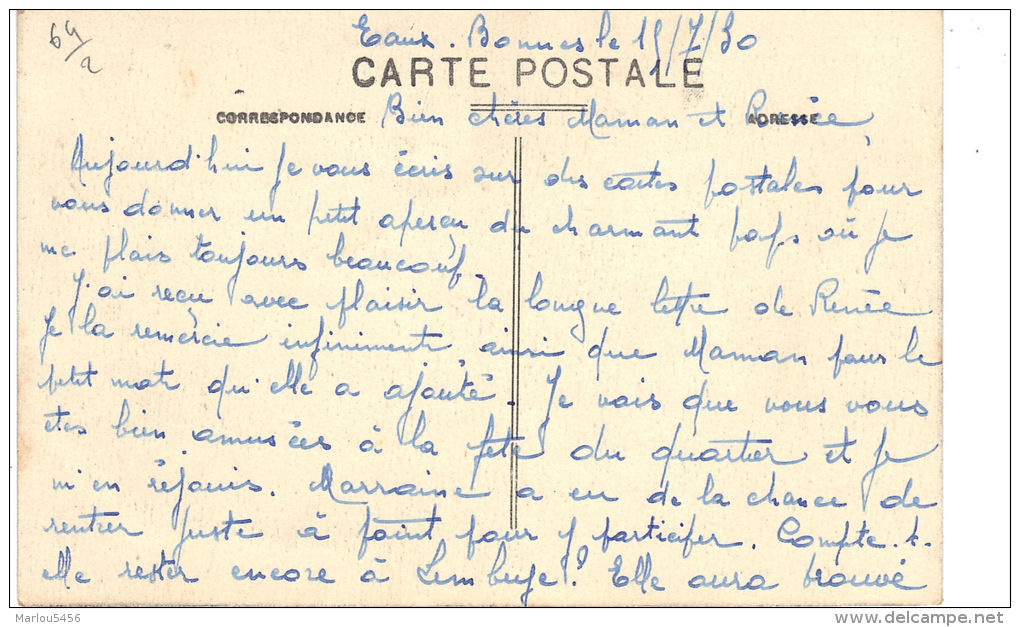 64/2
Eaux-Bonnes le 19/7/30
CARTE POSTALE
CORRESPONDANCE
ADRESSE
Bien chères Maman et Renée,
Aujourd'hui je vous écris sur des cartes postales pour
vous donner un petit aperçu du charmant pays où je
me plais toujours beaucoup.
J'ai reçu avec plaisir la longue lettre de Renée
Je la remercie infiniment, ainsi que Maman pour le
petit mot qu'elle a ajouté. Je vois que vous vous
êtes bien amusées à la fête du quartier et je
m'en réjouis. Marraine a eu de la chance de
rentrer juste à point pour y participer. Compte-t-
elle rester encore à Lembeye? Elle aura trouvé
Marlou5456
www.delcampe.net